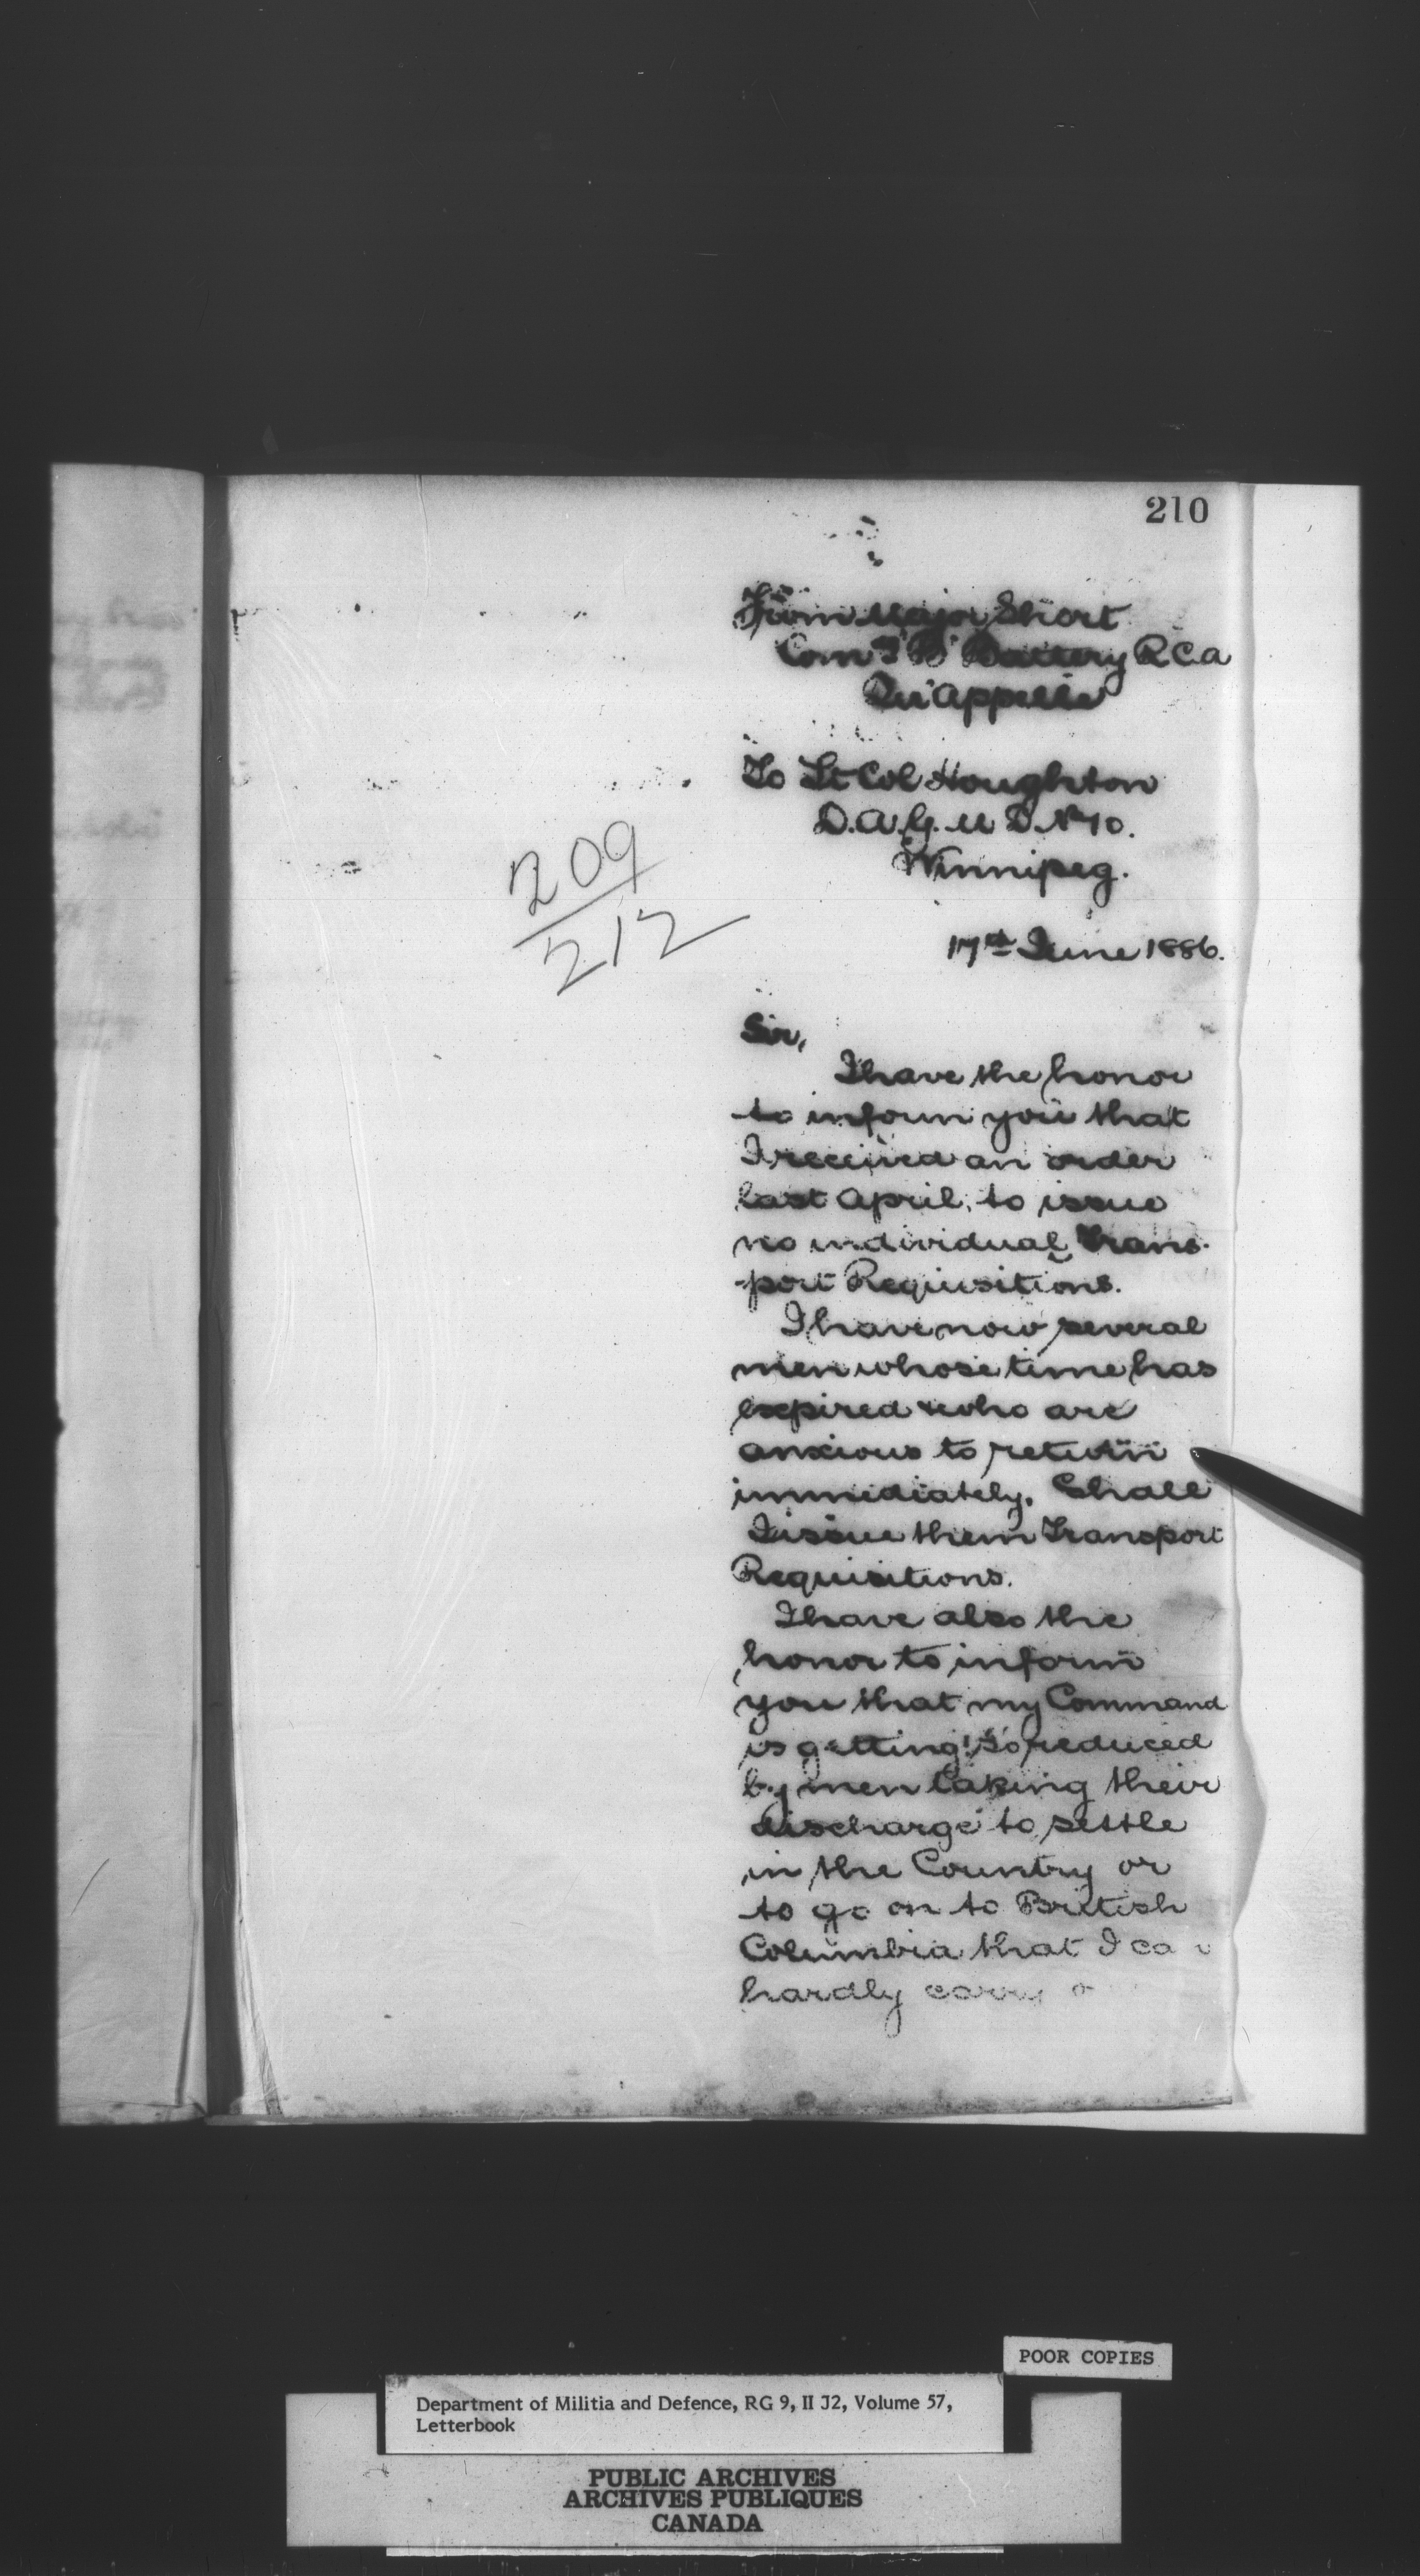 210
From Major Short
Comdg "B" Battery RCA
Qu'Appelle
To Lt Col Houghton
D.A.G. M D No 10.
Winnipeg.
209
212
17th June 1886.
Sir,
I have the honor
to inform you that
I received an order
last April, to issue
no individual Trans-
-port Requisitions.
I have now several
men whose time has
expired who are
anxious to return
immediately. Shall
I issue them Transport
Requisitions.
I have also the
honor to inform
you that my Command
is getting so reduced
by men taking their
discharge to settle
in the Country or
to go on to British
Columbia that I can
hardly carry o
POOR COPIES
Department of Militia and Defence, RG 9, II J2, Volume 57,
Letterbook
PUBLIC ARCHIVES
ARCHIVES PUBLIQUES
CANADA